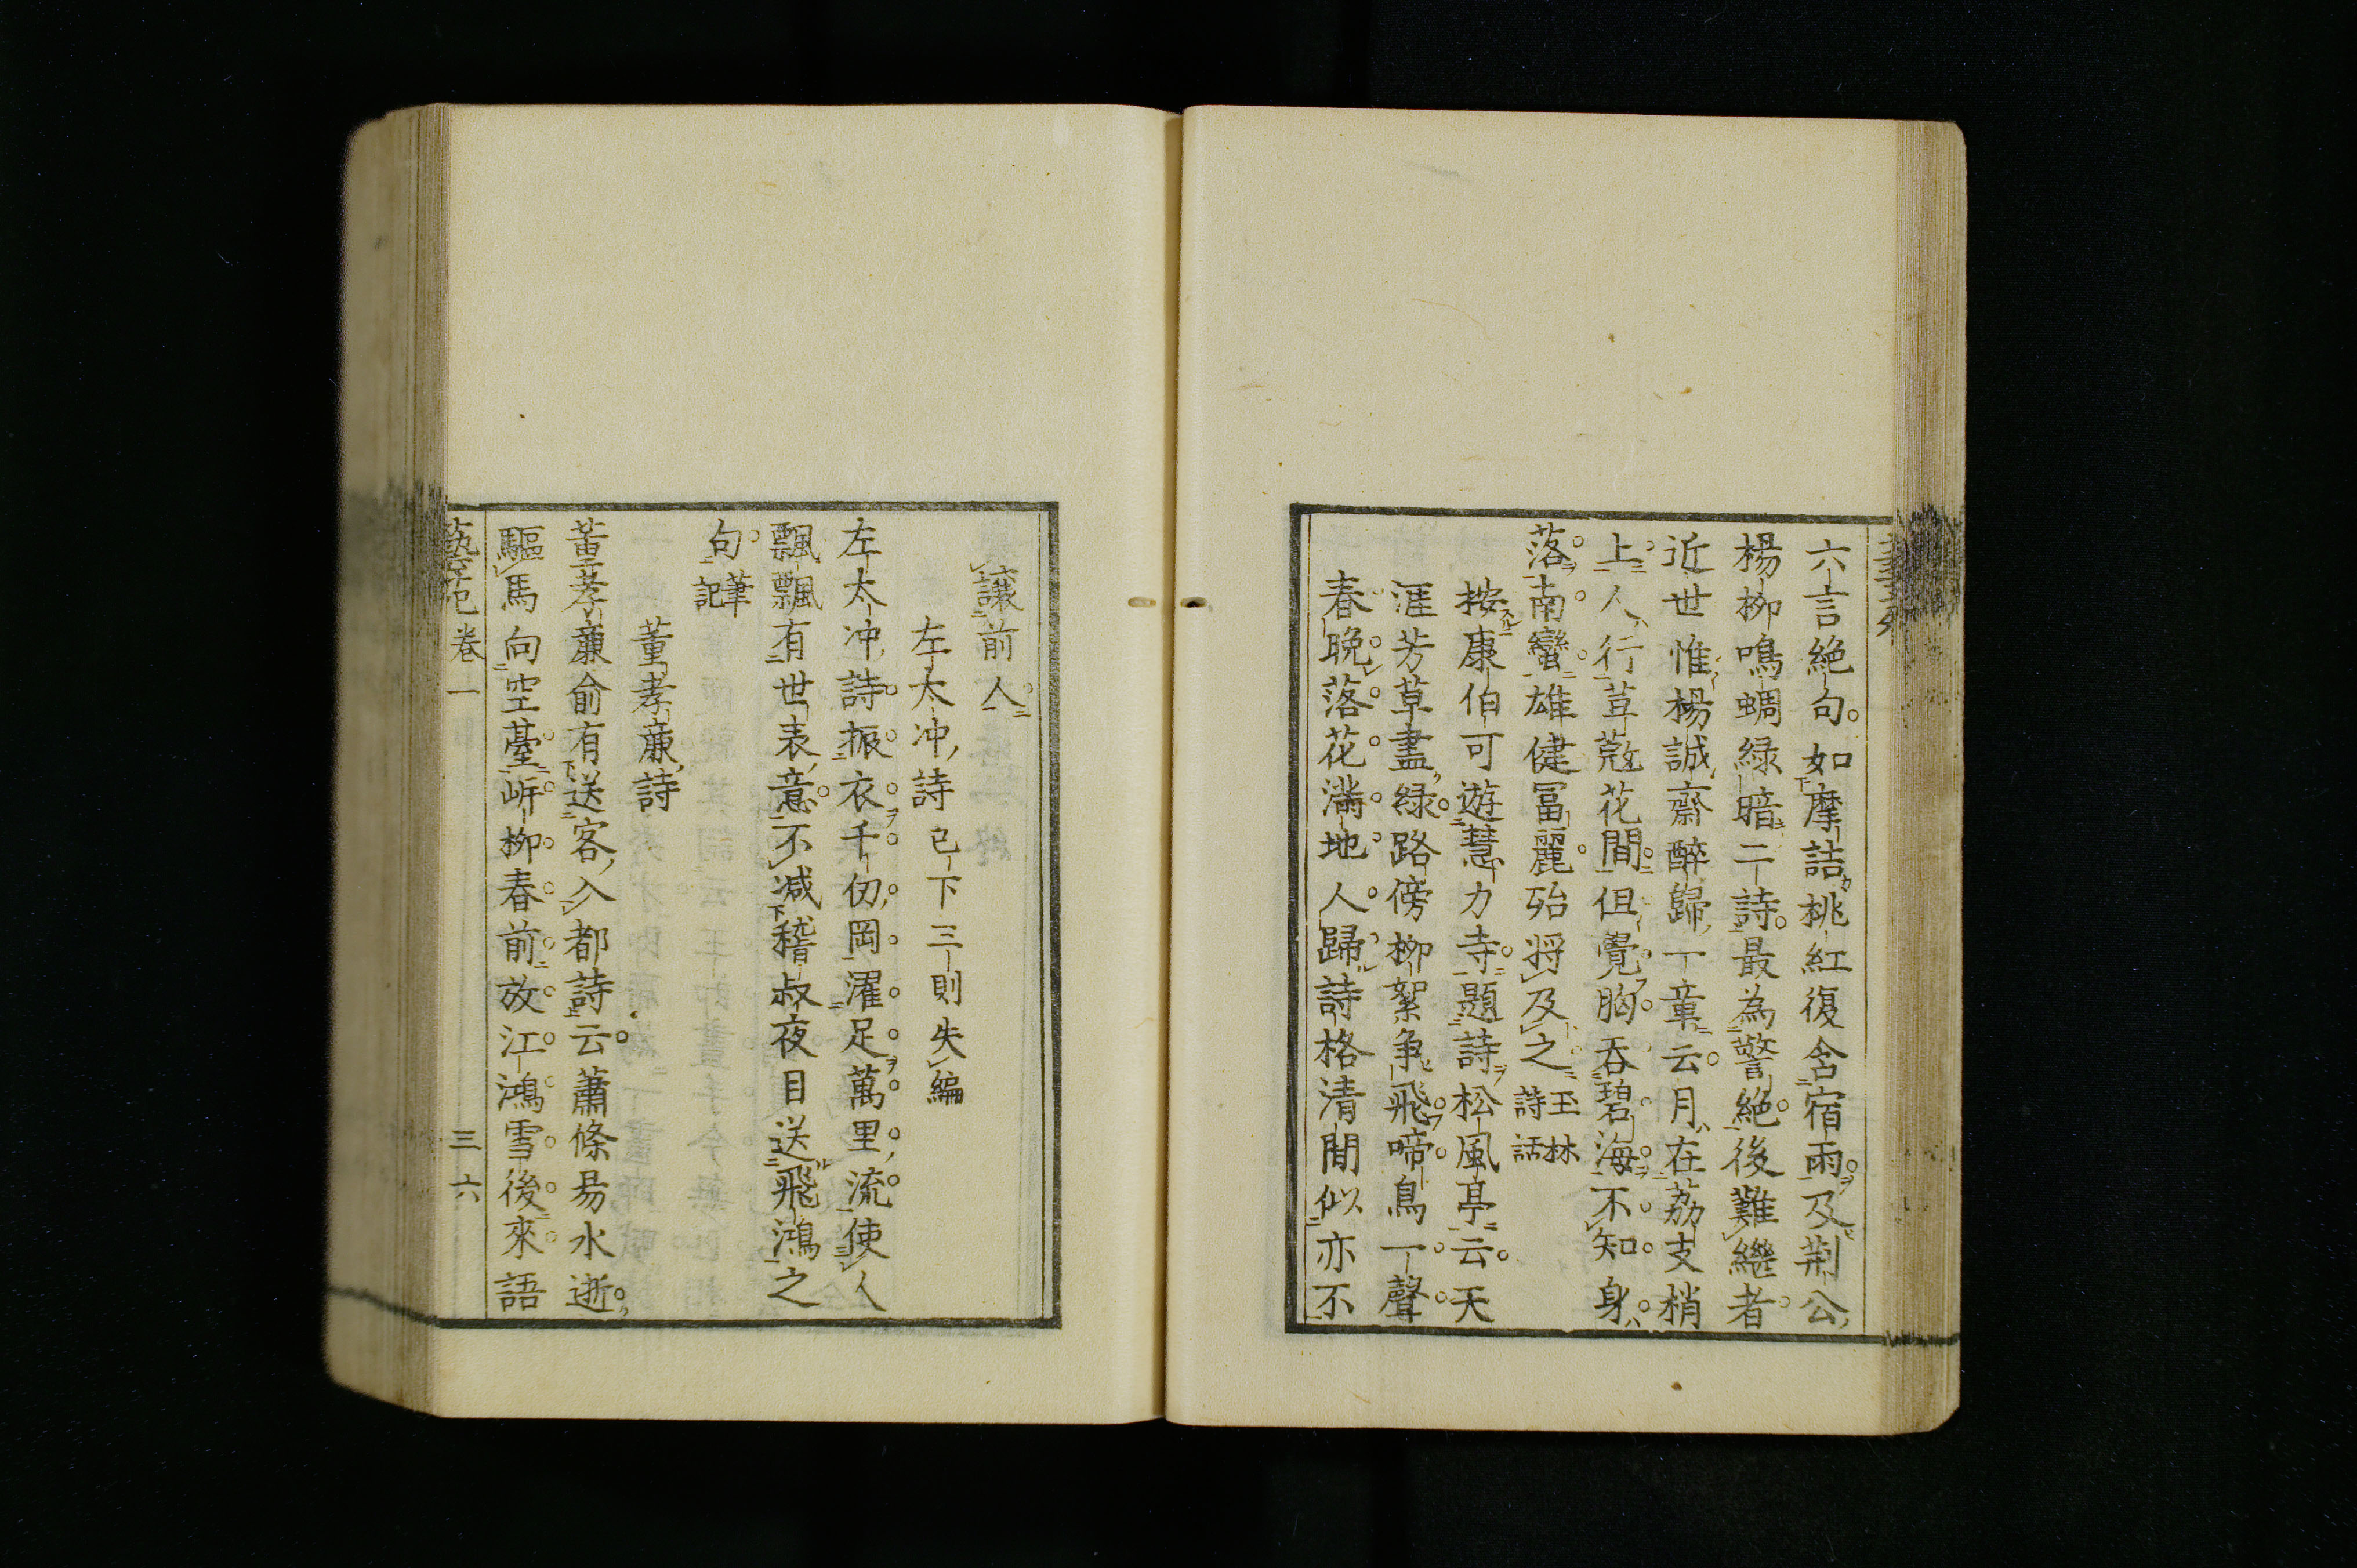 六言絶句如摩詰桃紅復含宿雨及荆公
楊柳鳴蜩緑暗二詩最為警絶後難繼者
近世惟楊誠齋醉歸一章云月在荔支梢
上人行荳蔲花間但覺胸吞碧海不知身
落南蠻雄健冨麗殆将及之玉林詩話
按康伯可遊慧力寺題詩松風亭云天
涯芳草盡緑路傍柳絮争飛啼鳥一聲
春晩落花満地人歸詩格清閒似亦不
譲前人
左太冲詩已下三則失編
左太冲詩振衣千仭岡濯足萬里流使人
飄飄有世表意不减稽叔夜目送飛鴻之
句筆記
董孝廉詩
董孝廉俞有送客入都詩云蕭條昜水逝
驅馬向空薹岍柳春前放江鴻雪後來語
藝苑 卷一 三 六